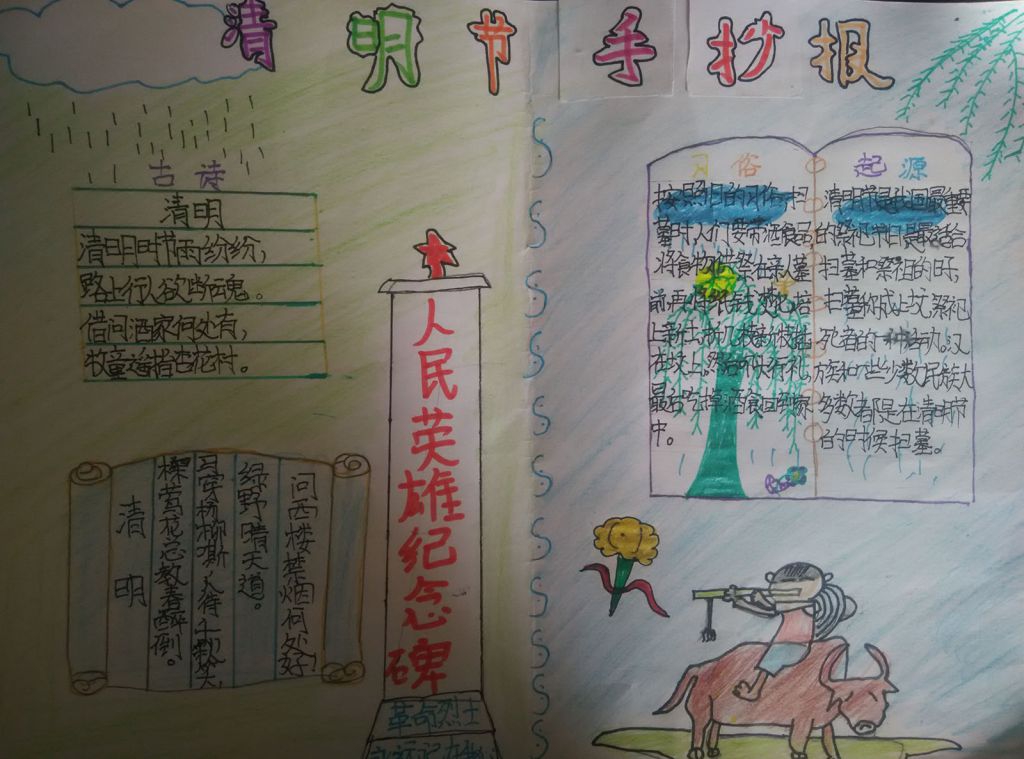 清明节手抄报
古诗
清明
清明时节雨纷纷，
路上行人欲断魂。
借问酒家何处有，
牧童遥指杏花村。
问西楼禁烟何处好
绿野晴天道。
马穿杨柳嘶，人倚
探莺花总教春醉倒。
清明
人民英雄纪念碑
革命烈士
习俗
按照旧的习俗，扫
墓时，人们要带酒食品
将食物供祭在亲人墓
前，再将
上新土，折几枝新枝插
在坟上，然后
最后吃掉酒食回到家
中。
起源
清明节是我国最重要
的祭祀节日是最适合
扫墓和祭祖的日子，
扫墓俗成上坟，祭祀
死者的一种活动。汉
族和一些少数民族大
多数都是在清明节
的时候扫墓。